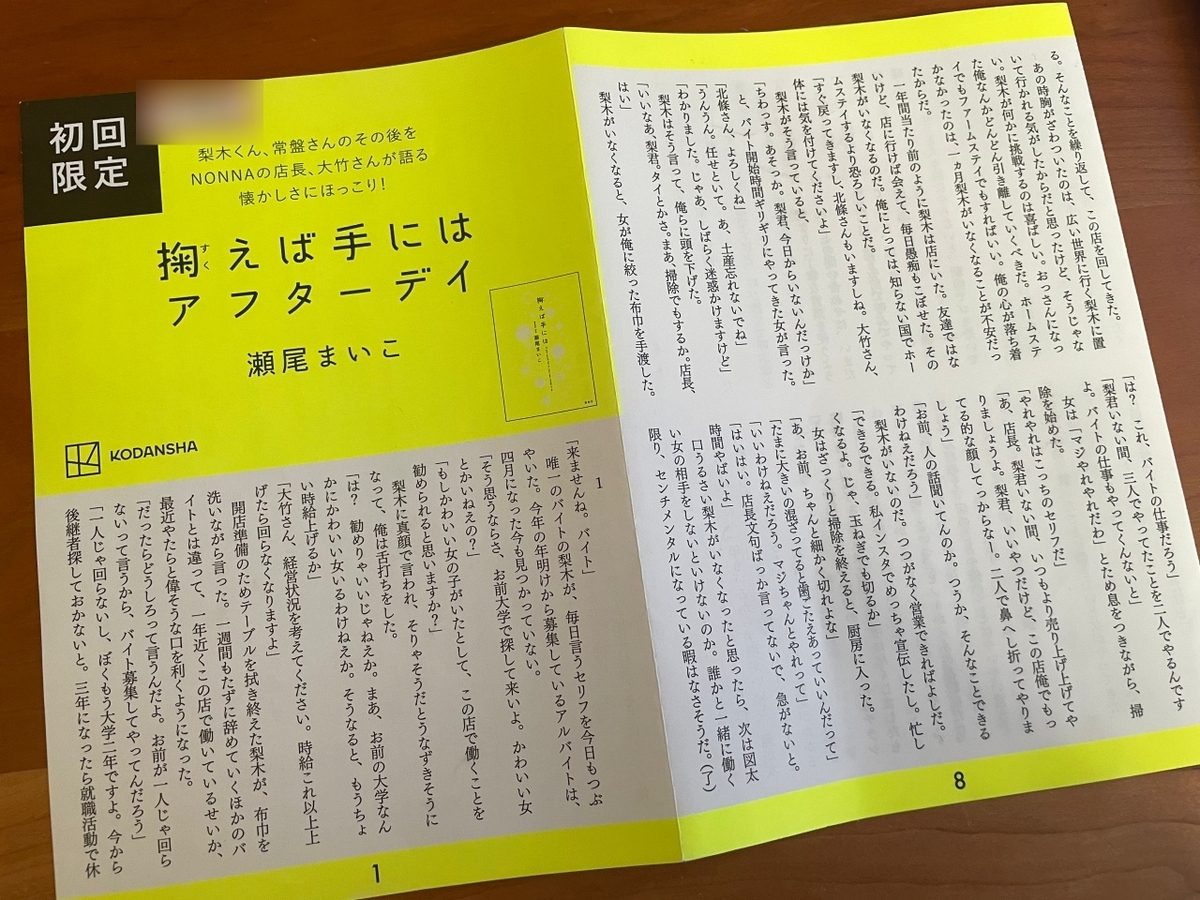 初回
限定
梨木くん、常盤さんのその後を
NONNAの店長、大竹さんが語る
懐かしさにほっこり!
掬えば手には
すく
アフターデイ
瀬尾まいこ
掬えば手には
瀬尾まいこ
KODANSHA
1
「来ませんね。バイト」
唯一のバイトの梨木が、毎日言うセリフを今日もつぶ
やいた。今年の年明けから募集しているアルバイトは、
四月になった今も見つかっていない。
「そう思うならさ、お前大学で探して来いよ。かわいい女
とかいねえの?」
「もしかわいい女の子がいたとして、この店で働くことを
勧められると思いますか?」
梨木に真顔で言われ、そりゃそうだとうなずきそうに
なって、俺は舌打ちをした。
「は? 勧めりゃいいじゃねえか。まあ、お前の大学なん
かにかわいい女いるわけねえか。そうなると、もうちょ
い時給上げるか」
「大竹さん、経営状況を考えてください。時給これ以上上
げたら回らなくなりますよ」
開店準備のためテーブルを拭き終えた梨木が、布巾を
洗いながら言った。一週間もたずに辞めていくほかのバ
イトとは違って、一年近くこの店で働いているせいか、
最近やたらと偉そうな口を利くようになった。
「だったらどうしろって言うんだよ。お前が一人じゃ回ら
ないって言うから、バイト募集してやってんだろう」
「一人じゃ回らないし、ぼくもう大学二年ですよ。今から
後継者探しておかないと。三年になったら就職活動で休
1
る。そんなことを繰り返して、この店を回してきた。
あの時胸がざわついたのは、広い世界に行く梨木に置
いて行かれる気がしたからだと思ったけど、そうじゃな
い。梨木が何かに挑戦するのは喜ばしい。おっさんになっ
た俺なんかどんどん引き離していくべきだ。ホームステ
イでもファームステイでもすればいい。俺の心が落ち着
かなかったのは、一ヵ月梨木がいなくなることが不安だっ
たからだ。
一年間当たり前のように梨木は店にいた。友達ではな
いけど、店に行けば会えて、毎日愚痴もこぼせた。その
梨木がいなくなるのだ。俺にとっては、知らない国でホー
ムステイするより恐ろしいことだ。
「すぐ戻ってきますし、北條さんもいますしね。大竹さん、
体には気を付けてくださいよ」
梨木がそう言っていると、
「ちわっす。あそっか。梨君、今日からいないんだっけか」
と、バイト開始時間ギリギリにやってきた女が言った。
「北條さん、よろしくね」
「うんうん。任せといて。あ、土産忘れないでね」
「わかりました。じゃあ、しばらく迷惑かけますけど」
梨木はそう言って、俺らに頭を下げた。
「いいなあ、梨君。タイとかさ。まあ、掃除でもするか。店長、
はい」
梨木がいなくなると、女が俺に絞った布巾を手渡した。
「は? これ、バイトの仕事だろう」
「梨君いない間、三人でやってたことを二人でやるんです
よ。バイトの仕事もやってくんないと」
女は「マジやれやれだわ」とため息をつきながら、掃
除を始めた。
「やれやれはこっちのセリフだ」
「あ、店長。梨君いない間、いつもより売り上げ上げてや
りましょうよ。梨君、いいやつだけど、この店俺でもっ
てる的な顔してっからなー。二人で鼻へし折ってやりま
しょう」
「お前、人の話聞いてんのか。つうか、そんなことできる
わけねえだろう」
梨木がいないのだ。つつがなく営業できればよしだ。
「できるできる。私インスタでめっちゃ宣伝したし。忙し
くなるよ。じゃ、玉ねぎでも切るか」
女はざっくりと掃除を終えると、厨房に入った。
「あ、お前、ちゃんと細かく切れよな」
「たまに大きいの混ざってると歯ごたえあっていいんだって」
「いいわけねえだろう。マジちゃんとやれって」
「はいはい。店長文句ばっか言ってないで、急がないと。
時間やばいよ」
口うるさい梨木がいなくなったと思ったら、次は図太
い女の相手をしないといけないのか。誰かと一緒に働く
限り、センチメンタルになっている暇はなさそうだ。(了)
8